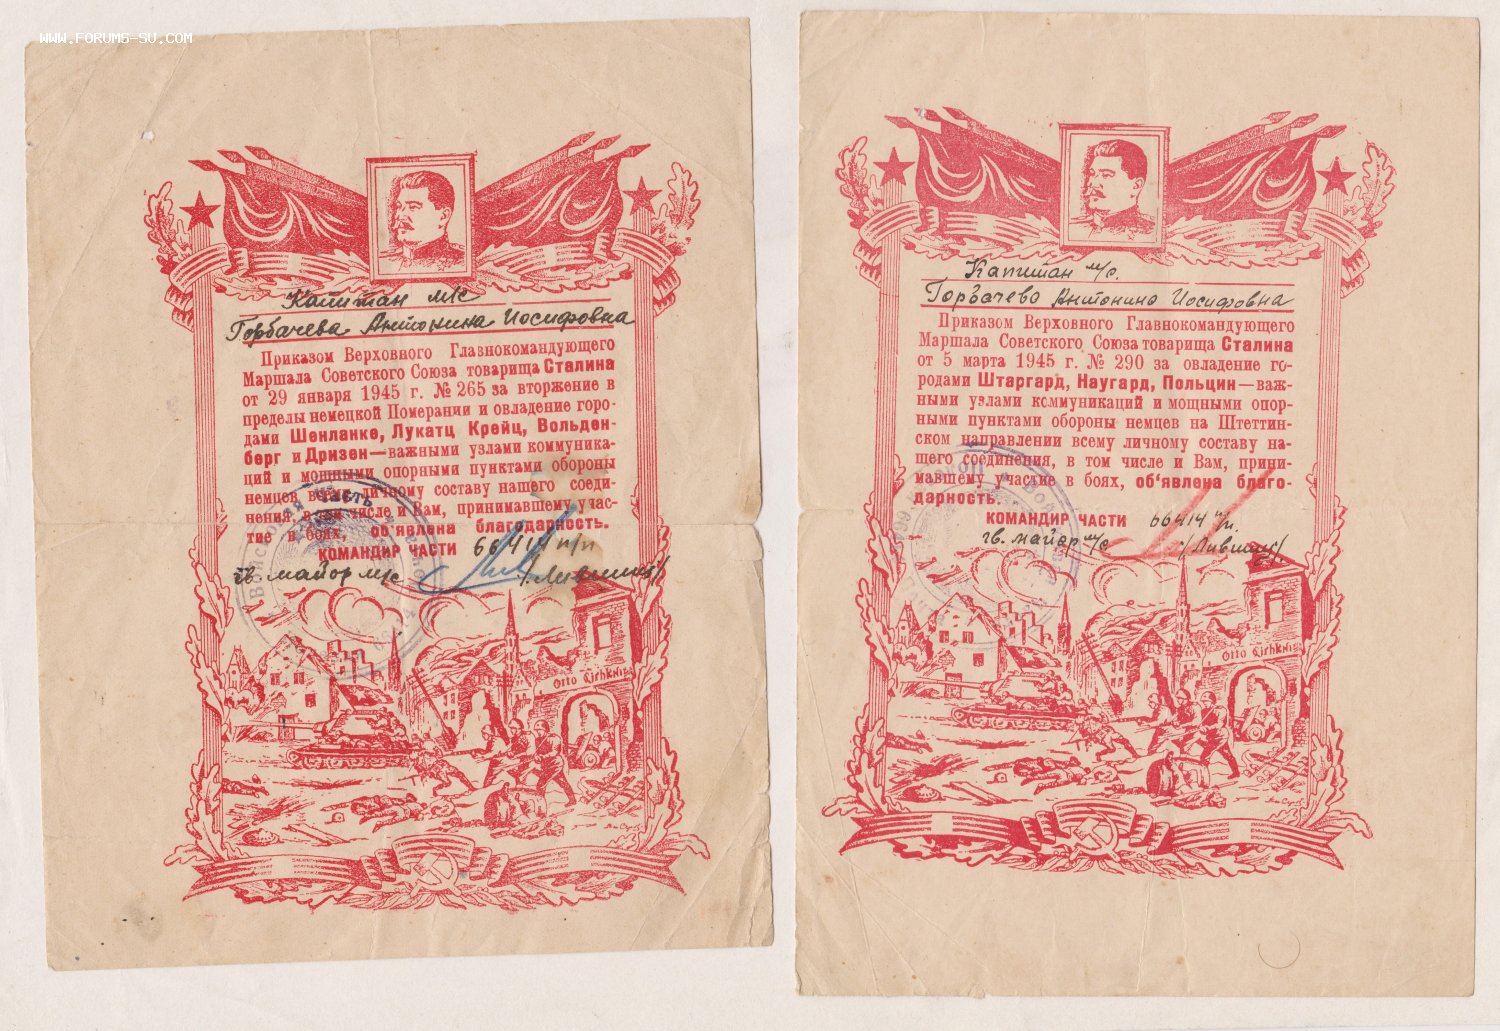 WWW.FORUMS-SU.COM
Капитан м/с
Горбачева Антонина Иосифовна
Приказом Верховного Главнокомандующего
Маршала Советского Союза товарища Сталина
от 29 января 1945 г. № 265 за вторжение в
пределы немецкой Померании и овладение горо-
дами Шенланке, Лукатц Крейц, Вольден-
берг и Дризен—важными узлами коммуника-
ций и мощными опорными пунктами обороны
немцев всему личному составу нашего соеди-
нения, в том числе и Вам, принимавшему учас-
тие в боях, об'явлена благодарность.
КОМАНДИР ЧАСТИ 66414 п/п
гв. майор м/с /Лившиц/
Войсковая часть
Otto
Капитан м/с.
Горбачева Антонина Иосифовна
Приказом Верховного Главнокомандующего
Маршала Советского Союза товарища Сталина
от 5 марта 1945 г. № 290 за овладение го-
родами Штаргард, Наугард, Польцин—важ-
ными узлами коммуникаций и мощными опор-
ными пунктами обороны немцев на Штеттин-
ском направлении всему личному составу на-
шего соединения, в том числе и Вам, прини-
мавшему участие в боях, об'явлена благо-
дарность.
КОМАНДИР ЧАСТИ 66414 п/п.
гв. майор м/с /Лившиц/
Otto